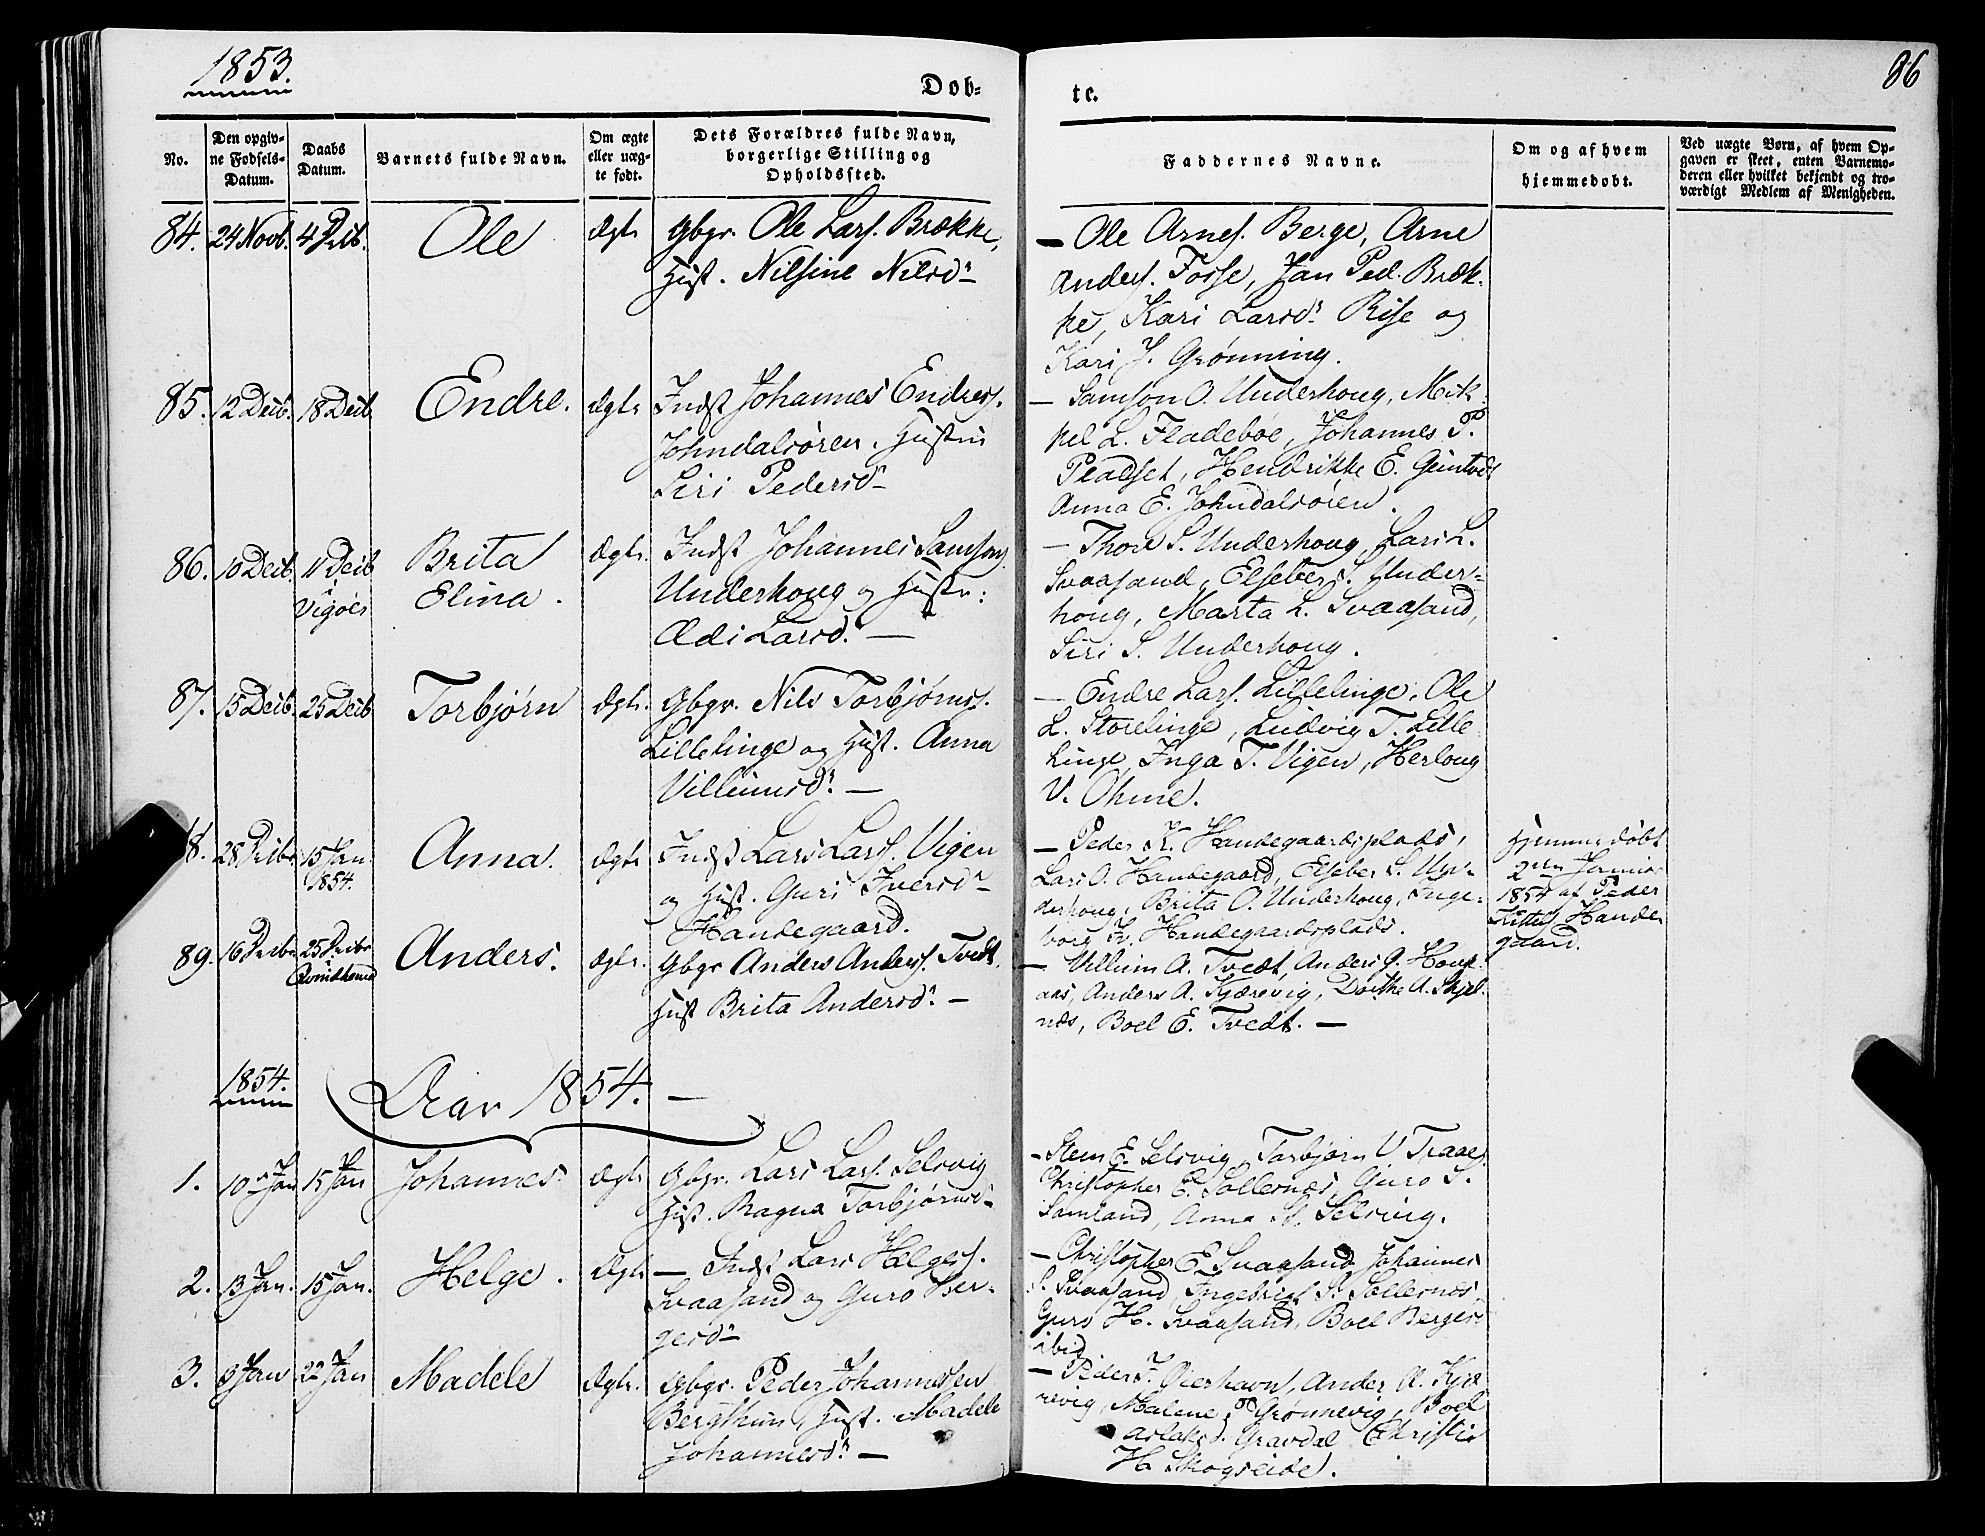 1853.
Dob-
te.
86
No.
Den opgiv-
ne Fødsels-
Datum.
Daabs
Datum.
Barnets fulde Navn.
Om ægte
eller uæg-
te født.
Dets Forældres fulde Navn,
borgerlige Stilling og
Opholdssted.
Faddernes Navne.
Om og af hvem
hjemmedøbt.
Ved uægte Børn, af hvem Op-
gaven er skeet, enten Barnemo-
deren eller hvilket bekjendt og tro-
værdigt Medlem af Menigheden.
84. 24 Novb. 4 Decb. Ole Ægte Gbgr. Ole Lars. Brække,
Hust. Nilsine Nilsd.
— Ole Arnes. Berge, Arne
Anders. Fosse, Jan Ped. Bræk-
ke, Kari Larsd. Rise og
Kari J. Grønning.
85. 12 Decb. 18 Decb Endre. Ægte Indst Johannes Endres.
Johndalsören. Hustru
Siri Pedersd
— Samson O. Underhoug, Mik-
kel L. Fladebøe, Johannes P.
Pladset, Hendrikke E.
Anna E. Johndalsören.
86. 10 Decb. 11 Decb
i
Vigöer
Brita
Elina.
Ægte. Indst Johannes Samsons.
Underhoug og Hustr:
Ædi Larsd. —
— Thore S. Underhoug, Lars L.
Svaasand, Elseber S. Under-
houg, Marta L. Svaasand,
Siri S. Underhoug.
87. 15 Decb. 25 Decb Torbjørn Ægte. Gbgr. Nils Torbjørns.
Lillelinge og Hust. Anna
Villumsd. —
— Endre Lars. Lillelinge, Ole
L. Storelinge, Ludvig T. Lille
linge, Inga T. Vigen, Herloug
V. Ohme.
8. 28 Decbr 15 Jan
1854.
Anna. Ægte Indst Lars Lars. Vigen
og Hust. Guri Iversd
Handegaard.
— Peder K. Handegaardsplads,
Lars O. Handegaard, Elseber S. Un-
derhoug, Brita O. Underhoug, Inge-
borg K. Handegaardsplads.
Hjemmedöbt
2den Januar
1854 af Peder
Kittels. Hande
gaard.
89. 16 Decbr 25 Decbr
Anders. Ægte. Gbgr Anders Anders. Tvedt.
Hust Brita Andersd. —
— Villum A. Tvedt, Anders J. Houk-
aas, Anders A. Kjærevig, Dorthe A. Skjel-
næs, Boel E. Tvedt. —
1854.
Aar 1854. —
1. 10 Jan 15 Jan Johannes Ægte Gbgr. Lars Lars. Selsvig
Hust. Ragna Torbjørnsd
— Sten E. Selsvig, Torbjørn V Traaes.
Christopher E. Sollesnæs, Guro S.
Samland, Anna St. Selsvig.
2. 13 Jan. 15 Jan. Helge. Ægte — Indst Lars Helges.
Svaasand og Guro Ber-
gesd
— Christopher E. Svaasand, Johannes
S. Svaasand, Ingebrigt S. Sollesnæs
Guro H. Svaasand, Boel Bergesd
ibid
3. 8 Jan 22 Jan Madele Ægte. Gbgr. Peder Johannesen
Bergthun, Hust. Madele
Johannesd. —
— Peder J. Anders A. Kjæ
revig, Malene P. Grønnevig, Boel
Aslaksd. Gravdal Christie
H. Skogseide.